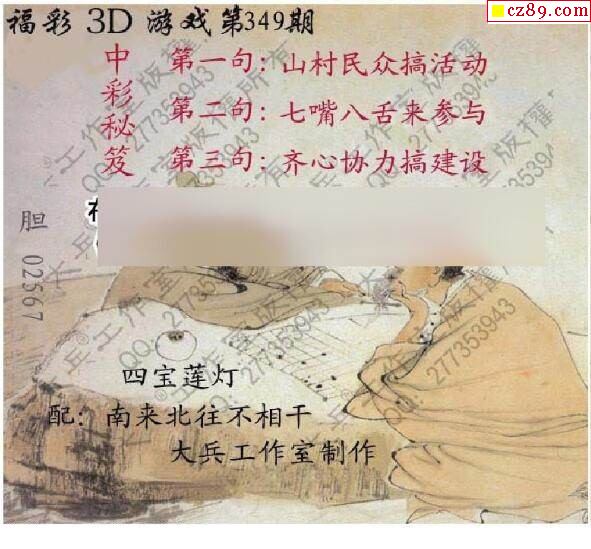 cz89.com
福彩 3D 游戏第349期
中彩秘笈
第一句：山村民众搞活动
第二句：七嘴八舌来参与
第三句：齐心协力搞建设
胆 02567
四宝莲灯
配：南来北往不相干
大兵工作室制作
大兵工作室版權所有
QQ:277353943